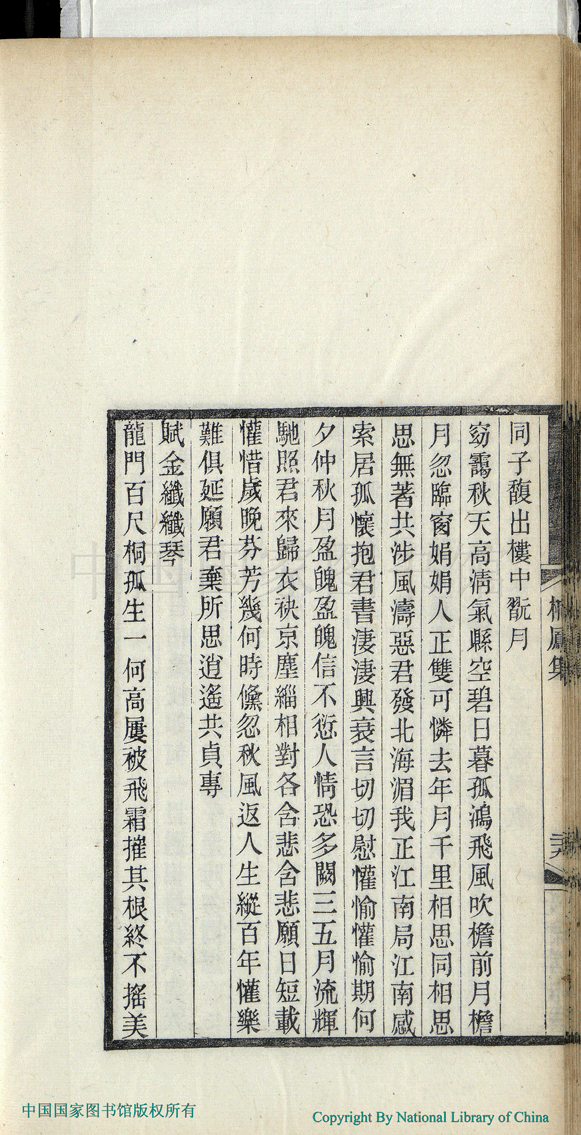 同子馥出樓中翫月
窈靄秋天高淸氣縣空碧日暮孤鴻飛風吹檐前月檐
月忽臨窗娟娟人正雙可憐去年月千里相思同相思
思無著共涉風濤惡君發北海湄我正江南局江南感
索居孤懷抱君書淒淒興衰言切切慰懽愉懽愉期何
夕仲秋月盈魄盈魄信不愆人情恐多闕三五月流輝
馳照君來歸衣袂京塵緇相對各含悲含悲願日短載
懽惜歲晚芬芳幾何時儵忽秋風返人生縱百年懽樂
難俱延願君棄所思逍遙共貞專
賦金纖纖琴
龍門百尺桐孤生一何高屢被飛霜摧其根終不搖美
中国国家图书馆版权所有
Copyright By National Library of China